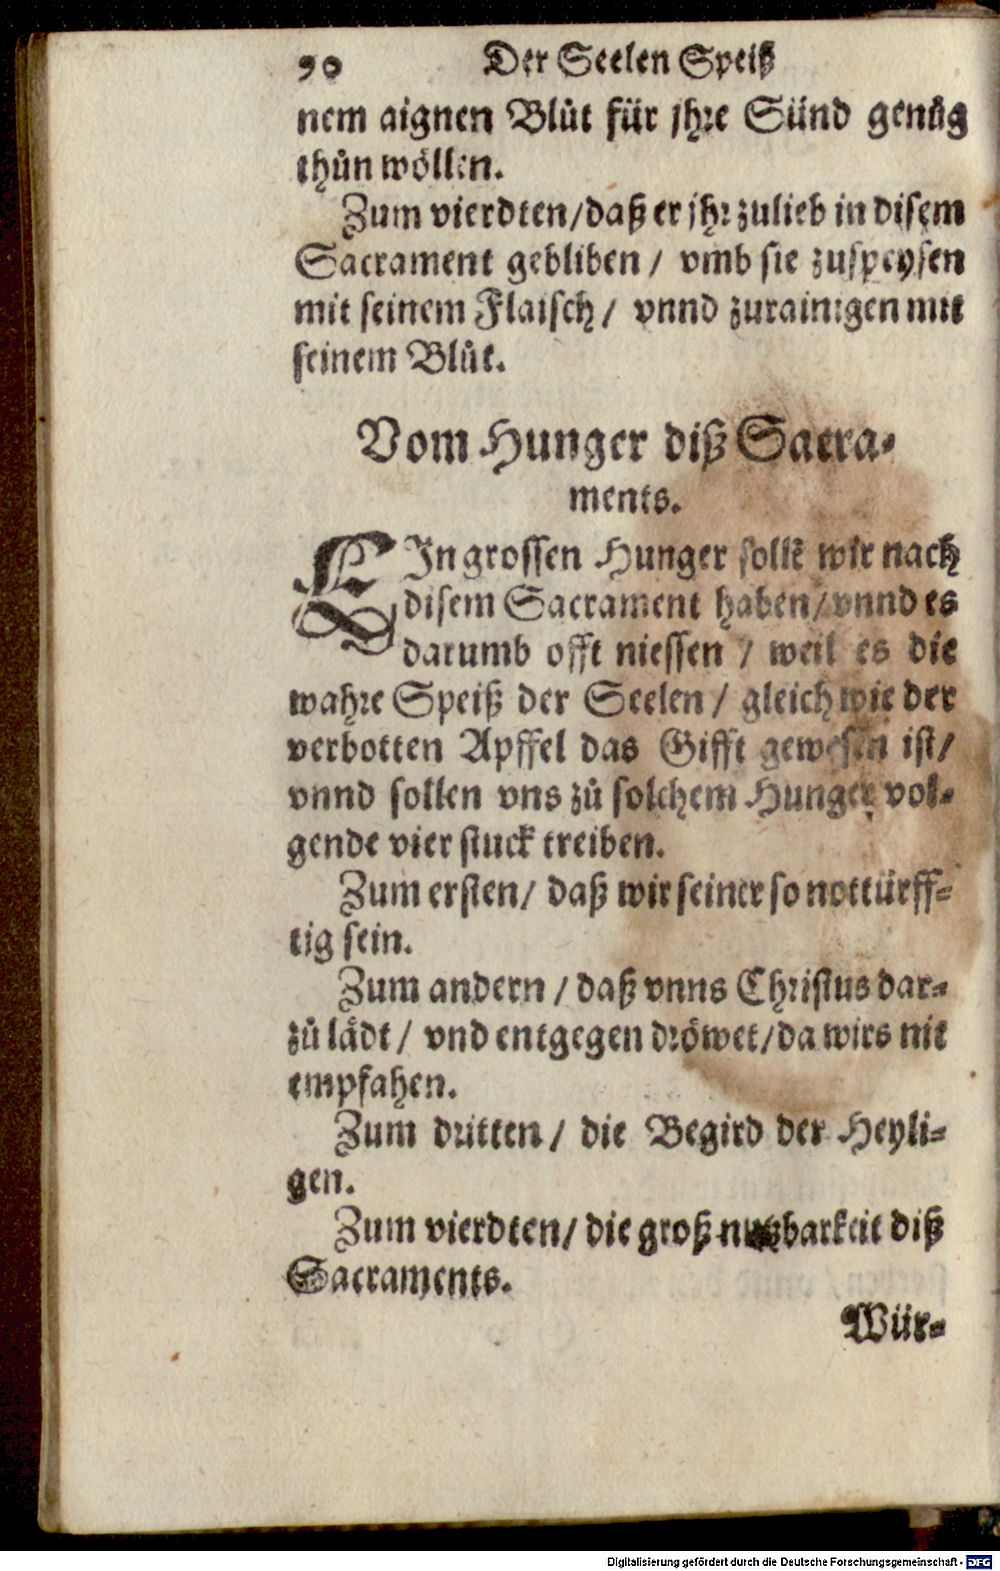 90 Der Seelen Speiß
nem aignen Blůt für jhre Sünd genůg
thůn wöllen.
Zum vierdten/daß er jhr zulieb in disem
Sacrament gebliben / vmb sie zuspeysen
mit seinem Flaisch / vnnd zurainigen mit
seinem Blůt.
Vom Hunger diß Sacra-
ments.
EIn grossen Hunger sollē wir nach
disem Sacrament haben/vnnd es
darumb offt niessen / weil es die
wahre Speiß der Seelen / gleich wie der
verbotten Apffel das Gifft gewesen ist/
vnnd sollen vns zů solchem Hunger vol-
gende vier stuck treiben.
Zum ersten/ daß wir seiner so nottürff-
tig sein.
Zum andern / daß vnns Christus dar-
zů lädt / vnd entgegen dröwet/da wirs nit
empfahen.
Zum dritten / die Begird der Heyli-
gen.
Zum vierdten/ die groß nutzbarkeit diß
Sacraments.
Wür-
Digitalisierung gefördert durch die Deutsche Forschungsgemeinschaft - DFG